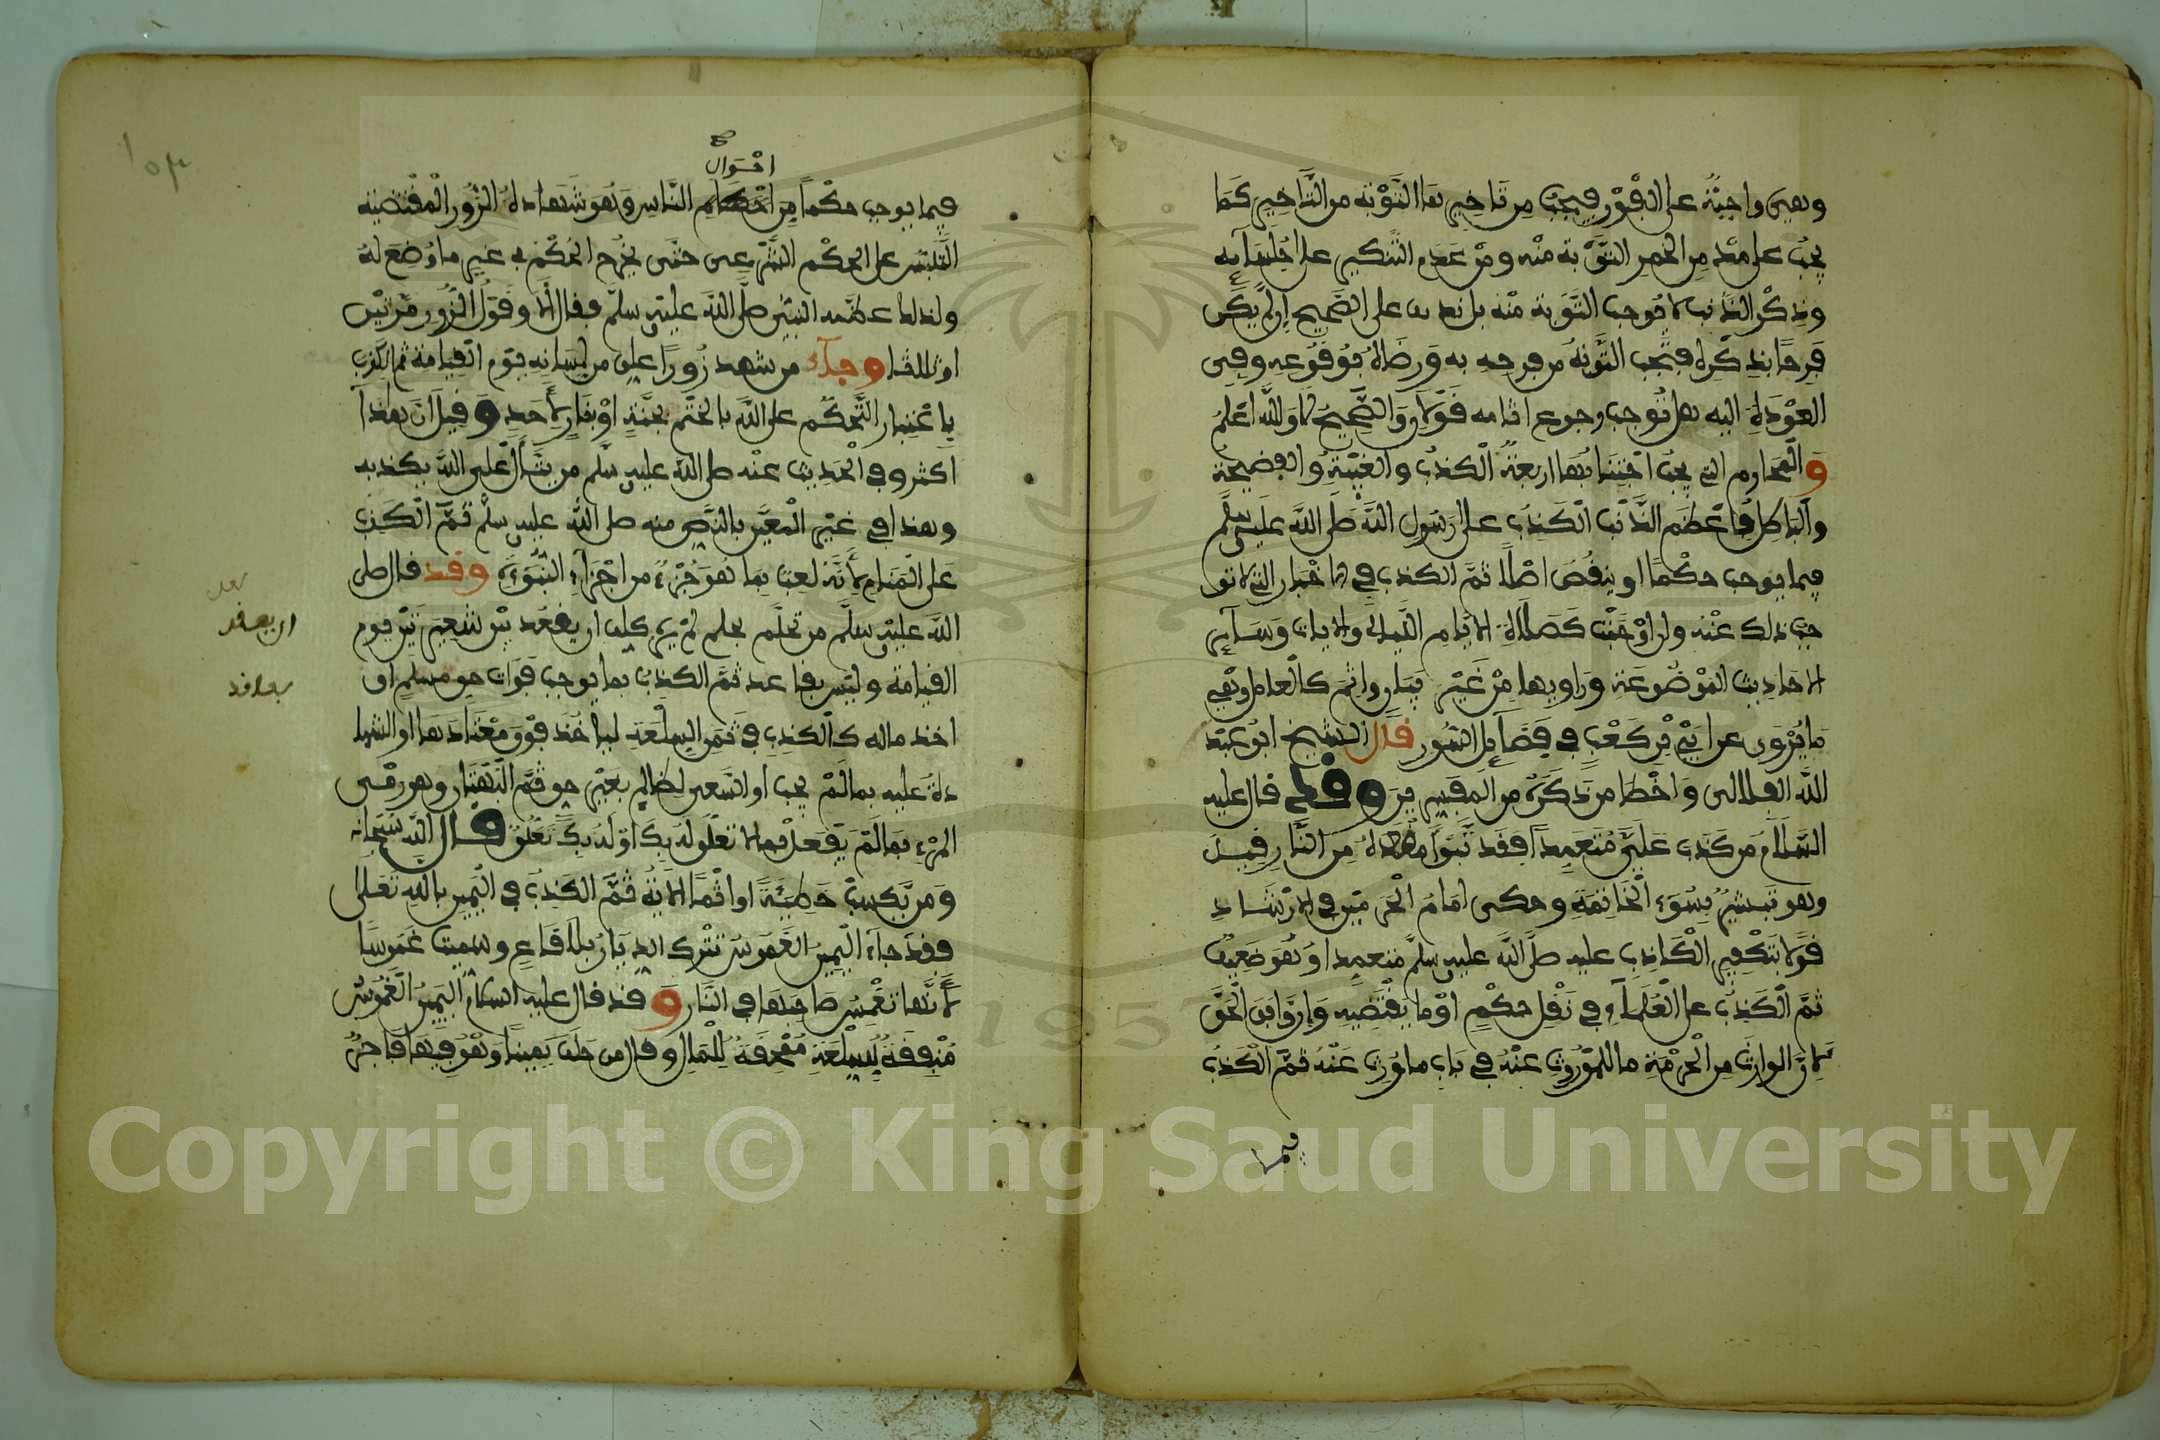 وهي واجبة على الفور فيجب من تاخيرها التوبة من التاخير كما
يجب على مد من الخمر التوبة منه ومن عدم النكير على جلسآيه
وذكر الذنب لا توجب التوبة منه بل ندب على الصحيح ان لم يكن
فرحا بذكره فتجب التوبة من فرحه به ورضاه بوقوعه وفي
العودة اليه هل توجب رجوع اثامه قولان والصحيح لا والله اعلم
والمحارم التي يجب اجتنابها اربعة الكذب والغيبة والفضيحة
والباطل فاعظم الذنب الكذب على رسول الله صلى الله عليه وسلم
فيما يوجب حكما او ينقص اصلا ثم الكذب في الاخبار التي لا تو
جب ذلك عنه وان اوجبت كصلاة الايام الليالي والايات وسآير
الاحاديث الموضوعة وراويها من غير بيان واثم كالعامل وهي
ما يروى عن ابي بن كعب في فضآيل السور قال الشيخ ابو عبد
الله البلالي واخطا من ذكره من المفسرين وقد قال عليه
السلام من كذب علي متعمدا فقد تبوا مقعده من النار قيل
وهو تبشير بسوء الخاتمة وحكى امام الحرمين في الارشاد
قولا بتكفير الكاذب عليه صلى الله عليه وسلم متعمدا وهو ضعيف
ثم الكذب على العلمآء في نقل حكم او ما يقتضيه وان وافق الحق
لان الوارث من الحرمة ما للموروث عنه في باب ما ورث عنه ثم الكذب
فيما
١٥٣
احوال صح
فيما يوجب حكما من احكام الناس وهو شهادة الزور المقتضية
التلبيس على الحكم الشرعي حتى يخرج الحكم في غير ما وضع له
ولذلك عظمه النبي صلى الله عليه وسلم فقال الا وقول الزور مرتين
او ثلاثا وجآء من شهد زورا علق من لسانه يوم القيامة ثم الكذب
باعتبار التحكم على الله بالختم بجنة او بنار لاحد وقيل ان هذا
اكثر وفي الحديث عنه صلى الله عليه وسلم من يتأل على الله يكذبه
وهذا في غير المعين بالنص منه صلى الله عليه وسلم ثم الكذب
على المنام لأنه لعب بما هو جزء من اجزآء النبوءة وقد قال صلى
الله عليه وسلم من تحلم بحلم لم يره كلف ان يعقد بين شعيرتين يوم
القيامة وليس بفاعد ثم الكذب بما يوجب فوات حق مسلم او
اخذ ماله كالكذب في ثمن السلعة لياخذ فوق معتادها او الشها
دة عليه بما لم يجب او السعي لظالم بغير حق ثم البهتان وهو رمي
المرء بما لم يفعل مما لا تعلق له بك او له بك تعلق قال الله سبحانه
ومن يكسب خطيئة او اثما الاية ثم الكذب في اليمين بالله تعالى
فقد جآء اليمين الغموس تترك الديار بلاقاع وسميت غموسا
لأنها تغمس صاحبها في النار وقد قال عليه السلام اليمين الغموس
منفقة للسلعة ممحقة للمال وقال من حلف يمينا وهو فيها فاجر
ان يعقد
بعاقد